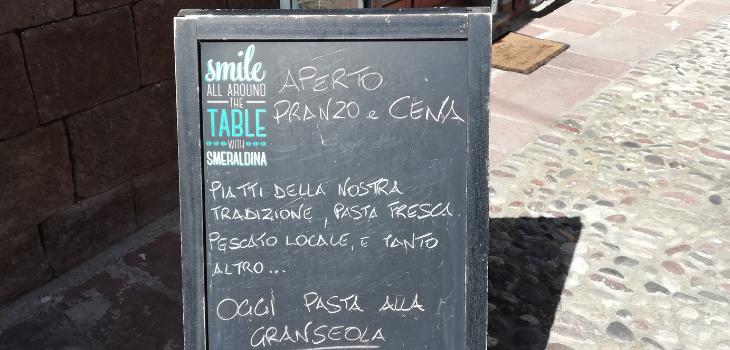 smile
ALL AROUND
THE
TABLE
WITH
SMERALDINA
APERTO
PRANZO e CENA
PIATTI DELLA NOSTRA
TRADIZIONE, PASTA FRESCA
PESCATO LOCALE, E TANTO
ALTRO...
OGGI PASTA ALLA
GRANSEOLA